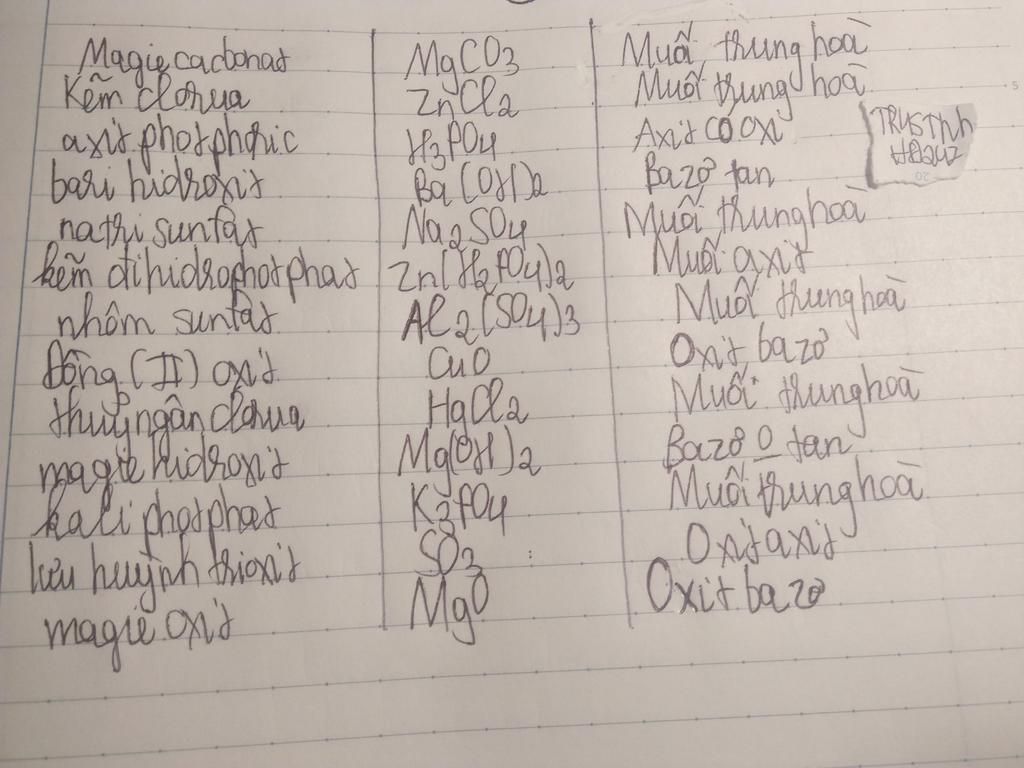 Magie cacbonat MgCO3 Muối thung hoà
Kẽm clorua ZnCl2 Muối thung hoà
axit photphoric H3PO4 Axit có oxi
bari hidroxit Ba(OH)2 Bazơ tan
natri sunfat Na2SO4 Muối thung hoà
kẽm đihidrophotphat Zn(H2PO4)2 Muối axit
nhôm sunfat Al2(SO4)3 Muối thung hoà
Đồng (II) oxit CuO Oxit bazơ
thuỷ ngân clorua HgCl2 Muối thung hoà
magie hidroxit Mg(OH)2 Bazơ O tan
kali photphat K3PO4 Muối thung hoà
lưu huỳnh trioxit SO3 Oxit axit
magie oxit MgO Oxit bazơ